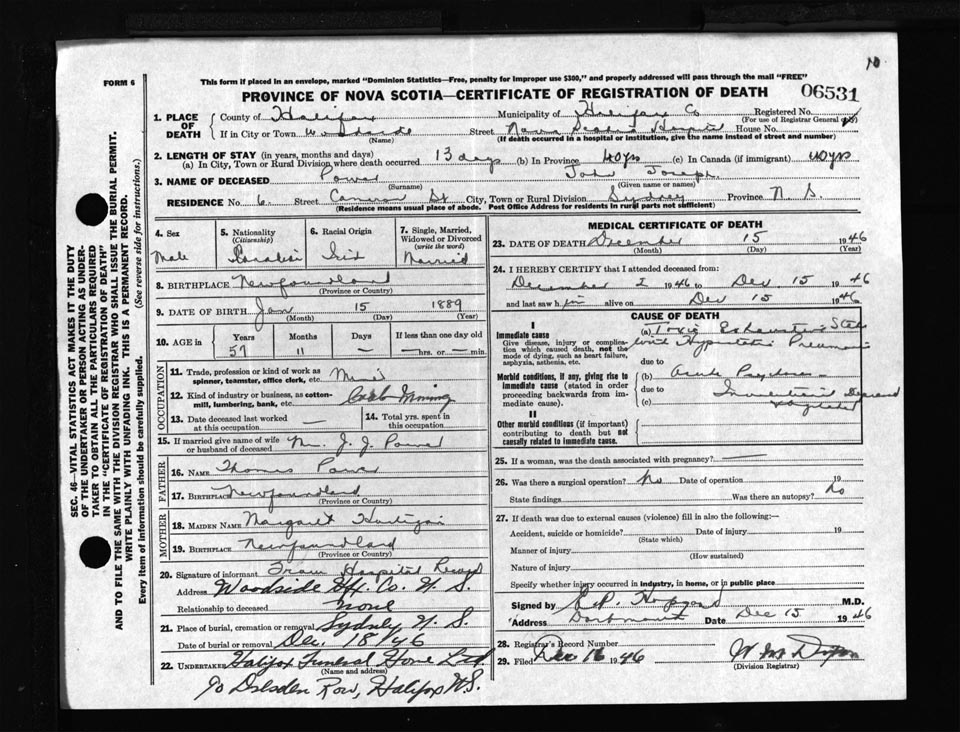 10
FORM 6
This form if placed in an envelope, marked "Dominion Statistics—Free, penalty for improper use $300," and properly addressed will pass through the mail "FREE"
PROVINCE OF NOVA SCOTIA—CERTIFICATE OF REGISTRATION OF DEATH 06531
1. PLACE OF DEATH County of Halifax Municipality of Halifax Co Registered No.
(For use of Registrar General
If in City or Town Woodside Street Nova Scotia Hospital House No.
(Name) (If death occurred in a hospital or institution, give the name instead of street and number)
2. LENGTH OF STAY (in years, months and days)
(a) In City, Town or Rural Division where death occurred 13 days (b) In Province 40 yrs (c) In Canada (if immigrant) 40 yrs
3. NAME OF DECEASED Power John Joseph
(Surname) (Given name or names)
RESIDENCE No. 6 Street St City, Town or Rural Division Sydney Province N. S.
(Residence means usual place of abode. Post Office Address for residents in rural parts not sufficient)
4. Sex
Male
5. Nationality (Citizenship)
Canadian
6. Racial Origin
Irish
7. Single, Married, Widowed or Divorced (write the word)
Married
8. BIRTHPLACE Newfoundland
(Province or Country)
9. DATE OF BIRTH Jan 15 1889
(Month) (Day) (Year)
10. AGE in Years Months Days If less than one day old
57 11 — —hrs. or —min.
OCCUPATION
11. Trade, profession or kind of work as spinner, teamster, office clerk, etc. Miner
12. Kind of industry or business, as cotton-mill, lumbering, bank, etc. Mining
13. Date deceased last worked at this occupation —
14. Total yrs. spent in this occupation
15. If married give name of wife or husband of deceased Mrs. J. J. Power
FATHER
16. NAME Thomas Power
17. BIRTHPLACE Newfoundland
(Province or Country)
MOTHER
18. MAIDEN NAME Margaret
19. BIRTHPLACE Newfoundland
(Province or Country)
20. Signature of informant From Hospital Record
Address Woodside Hfx. Co. N. S.
Relationship to deceased none
21. Place of burial, cremation or removal Sydney N. S.
Date of burial or removal Dec. 18 '46
22. UNDERTAKER Halifax Funeral Home Ltd.
(Name and address)
90 Dresden Row, Halifax N.S.
MEDICAL CERTIFICATE OF DEATH
23. DATE OF DEATH December 15 1946
(Month) (Day) (Year)
24. I HEREBY CERTIFY that I attended deceased from:
December 2 1946 to Dec 15 1946
and last saw him alive on Dec 15 1946
CAUSE OF DEATH
I
Immediate cause
Give disease, injury or complication which caused death, not the mode of dying, such as heart failure, asphyxia, asthenia, etc.
(a) Toxic Exhaustive State
with Hypostatic Pneumonia
due to
Morbid conditions, if any, giving rise to immediate cause (stated in order proceeding backwards from immediate cause).
(b) Acute Psychosis
due to
(c)
II
Other morbid conditions (if important) contributing to death but not causally related to immediate cause.
25. If a woman, was the death associated with pregnancy? —
26. Was there a surgical operation? No Date of operation 19
State findings Was there an autopsy? No
27. If death was due to external causes (violence) fill in also the following:—
Accident, suicide or homicide? Date of injury 19
(State which)
Manner of injury
(How sustained)
Nature of injury
Specify whether injury occurred in industry, in home, or in public place
Signed by M.D.
Address Dartmouth Date Dec 15 1946
28. Registrar's Record Number
29. Filed Dec 16 1946
(Division Registrar)
SEC. 46—VITAL STATISTICS ACT MAKES IT THE DUTY OF THE UNDERTAKER OR PERSON ACTING AS UNDERTAKER TO OBTAIN ALL THE PARTICULARS REQUIRED IN THE "CERTIFICATE OF REGISTRATION OF DEATH" AND TO FILE THE SAME WITH THE DIVISION REGISTRAR WHO SHALL ISSUE THE BURIAL PERMIT.
WRITE PLAINLY WITH UNFADING INK. THIS IS A PERMANENT RECORD.
Every item of information should be carefully supplied. (See reverse side for instructions.)